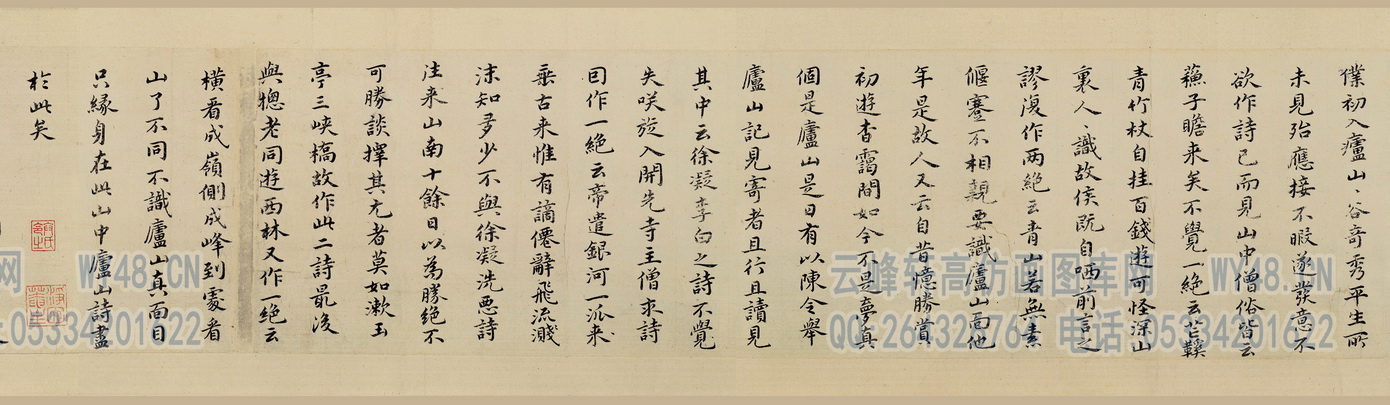 僕初入廬山、谷奇秀平生所
未見殆應接不暇遂發意不
欲作詩已而見山中僧俗皆云
蘇子瞻来矣不覺一絕云芒鞵
青竹杖自挂百錢遊可怪深山
裏人、識故侯既自哂前言之
謬復作两絕云青山若無素
偃蹇不相親要識廬山面他
年是故人又云自昔憶勝賞
初遊杳靄間如今不是夢真
個是廬山是日有以陳令舉
廬山記見寄者且行且讀見
其中云徐凝李白之詩不覺
失咲旋入開先寺主僧求詩
囙作一絕云帝遣銀河一派来
垂古来惟有謫僊辭飛流濺
沫知多少不與徐凝洗惡詩
往来山南十餘日以為勝絕不
可勝談擇其尤者莫如漱玉
亭三峽橋故作此二詩最後
與摠老同遊西林又作一絕云
橫看成嶺側成峰到處看
山了不同不識廬山真面目
只緣身在此山中廬山詩盡
於此矣
云峰轩高仿画图库网 WY48.CN
电话:05334201622
网 WY48.CN
:05334201622